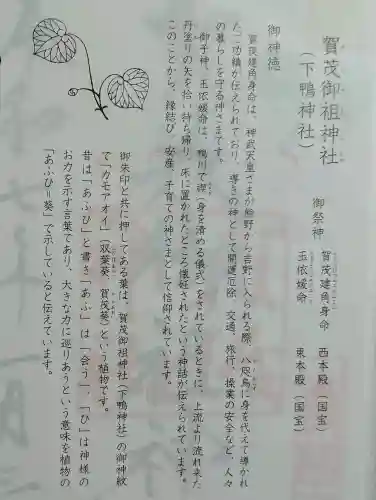 賀茂御祖神社
(下鴨神社)
御祭神
賀茂建角身命 西本殿(国宝)
玉依媛命 東本殿(国宝)
御神徳
賀茂建角身命は、神武天皇さまが熊野から吉野に入られる際、八咫烏に身を代えて導かれ
たご功績が伝えられており、導きの神として開運厄除、交通、旅行、操業の安全など、人々
の暮らしを守る神さまです。
御子神、玉依媛命は、鴨川で禊(身を清める儀式)をされているときに、上流より流れ来た
丹塗りの矢を拾い持ち帰り、床に置かれたところ懐妊されたという神話が伝えられています。
このことから、縁結び、安産、子育ての神さまとして信仰されています。
御朱印と共に押してある葉は、賀茂御祖神社(下鴨神社)の御神紋
で「カモアオイ」(双葉葵、賀茂葵)という植物です。
昔は「あふひ」と書き「あふ」は「会う」、「ひ」は神様の
お力を示す言葉であり、大きな力に巡りあうという意味を植物の
「あふひ=葵」で示していると伝えています。